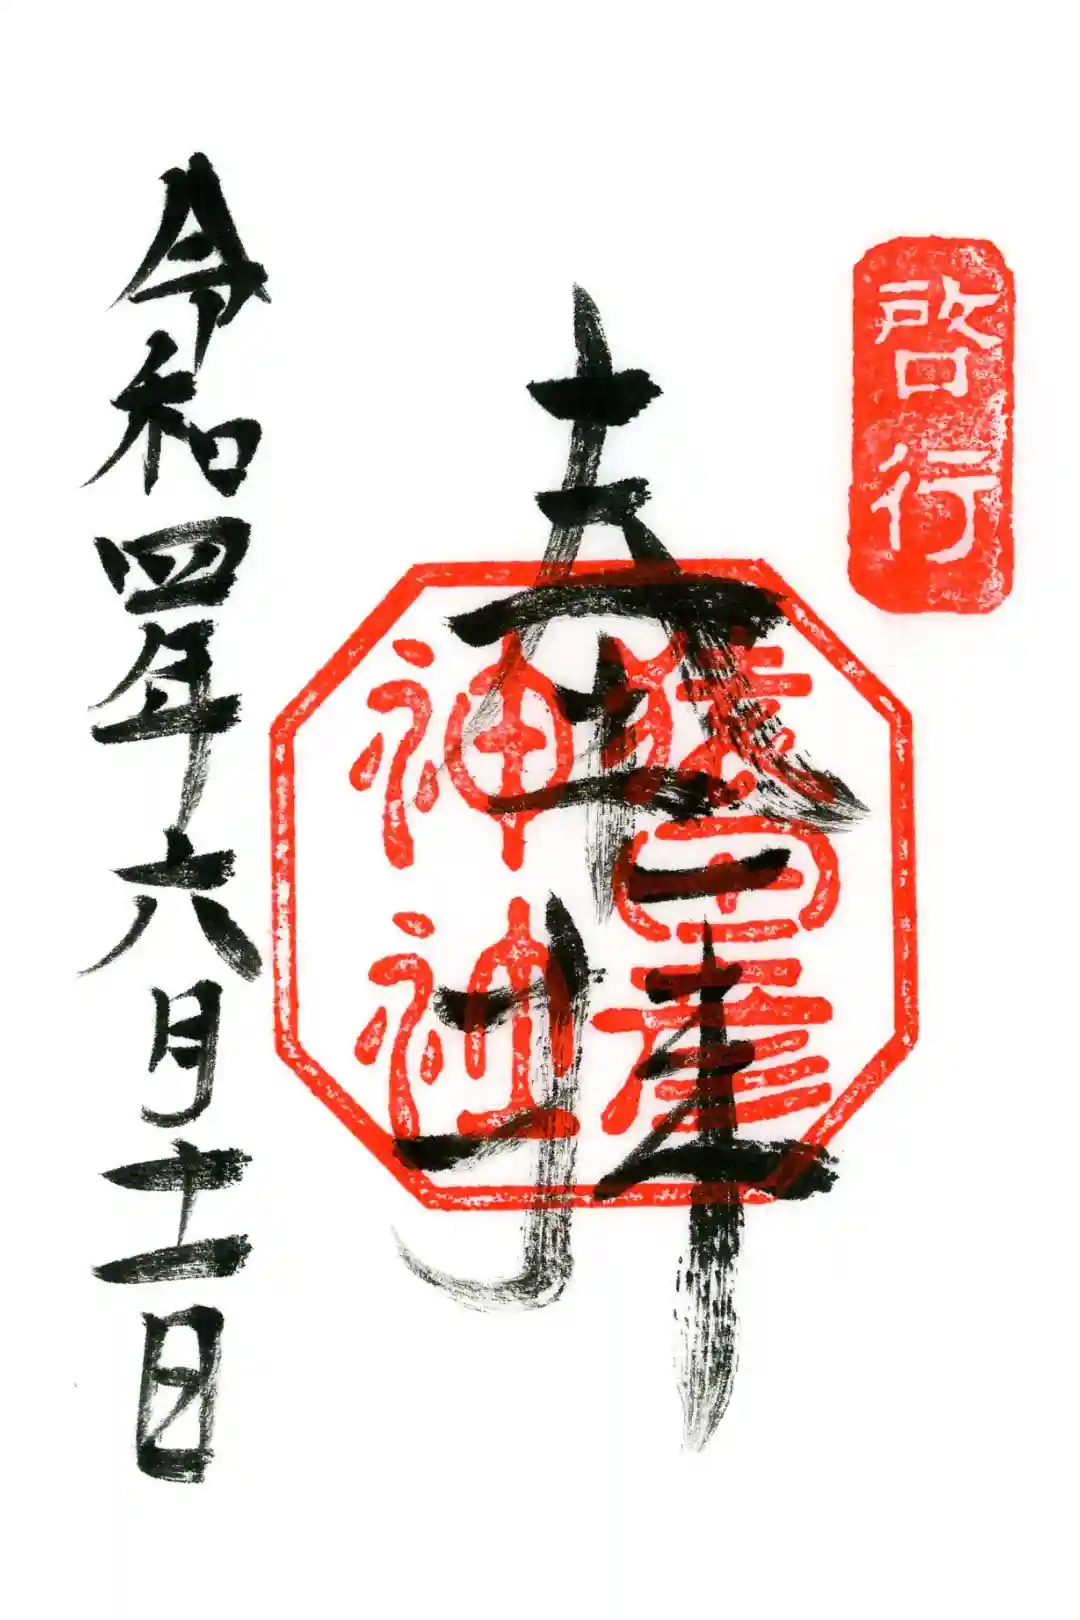 啓行
奉拝
猿田彦
神社
令和四年六月十一日